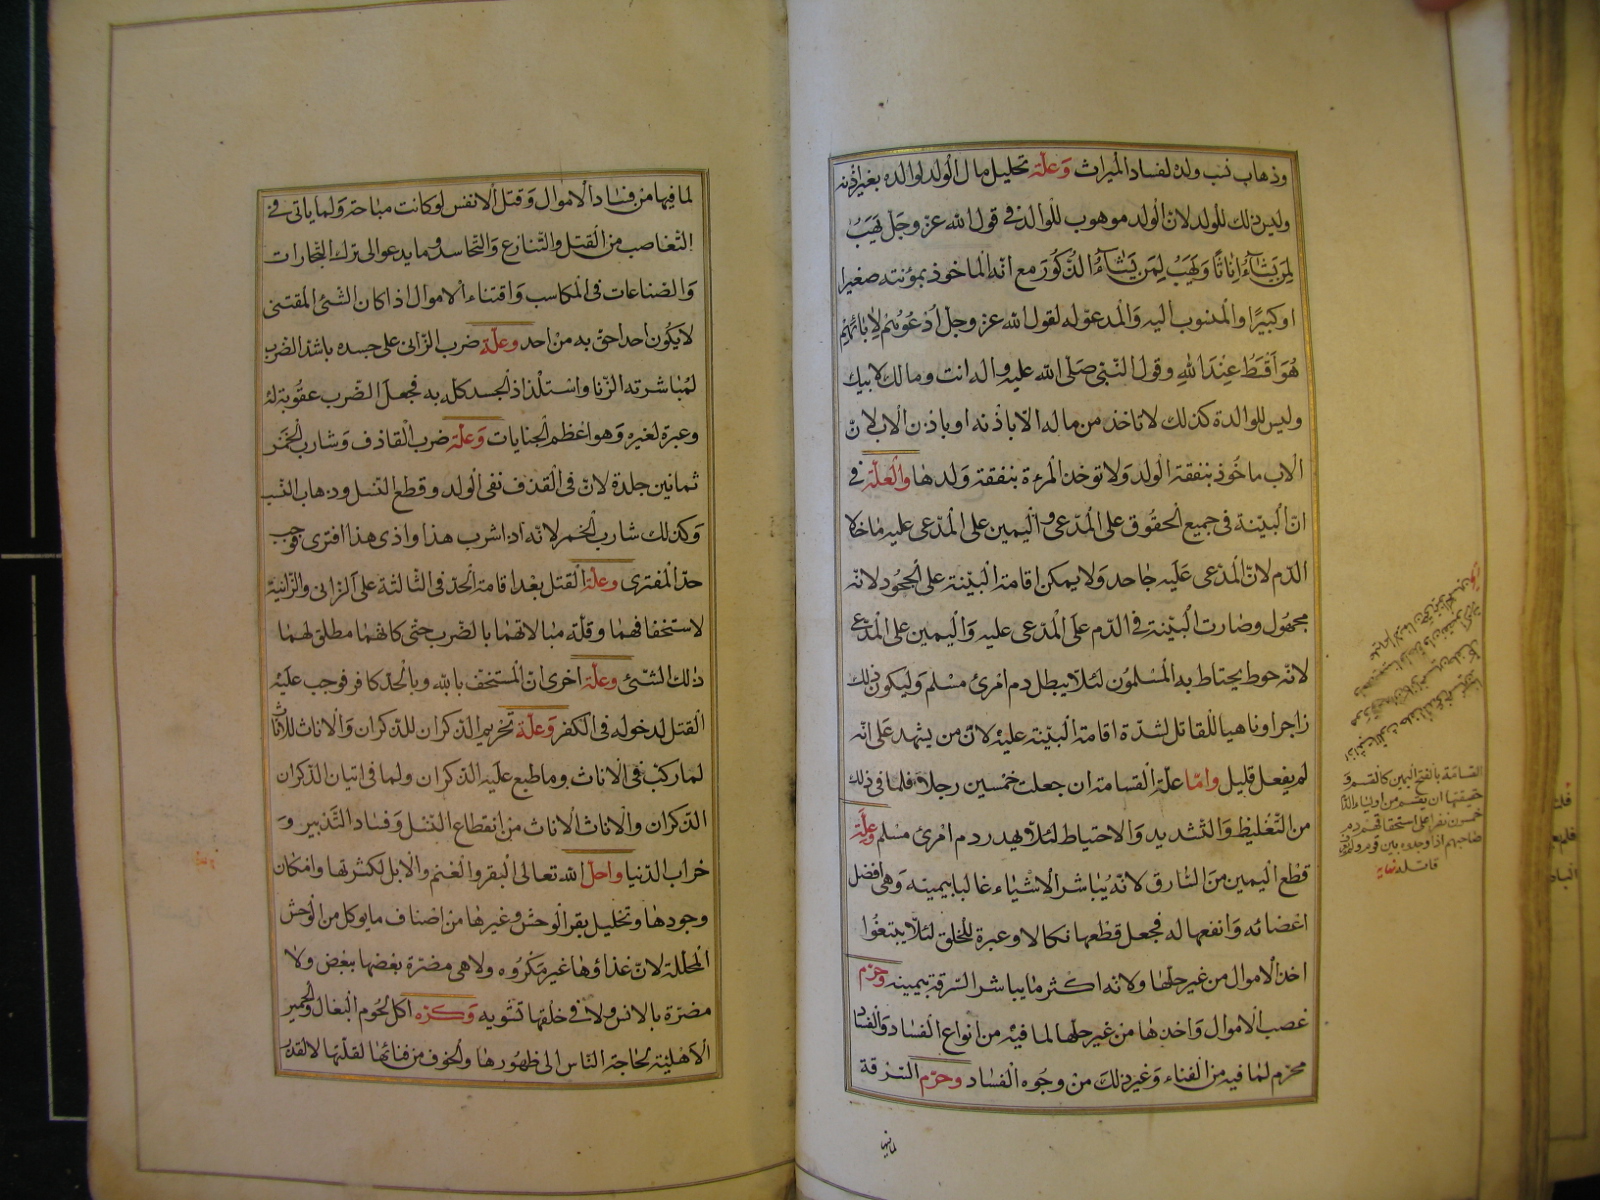 وذهاب نسب ولده لفساد الميراث وعلة تحليل مال الولد لوالده بغير اذنه
وليس ذلك للولد لان الولد موهوب للوالد في قول الله عز وجل يهب
لمن يشاء اناثا ويهب لمن يشاء الذكور مع انه الماخوذ بمؤنته صغيرا
او كبيرا والمنسوب اليه والمدعو له لقول الله عز وجل ادعوهم لابائهم
هو اقسط عند الله وقول النبي صلى الله عليه واله انت ومالك لابيك
وليس للوالدة كذلك لا تاخذ من ماله الا باذنه او باذن الاب لان
الاب ماخوذ بنفقة الولد ولا توخذ المرءة بنفقة ولدها والعلة في
ان البينة في جميع الحقوق على المدعي واليمين على المدعى عليه ما خلا
الدم لان المدعى عليه جاحد ولا يمكن اقامة البينة على الجحود لانه
مجهول وصارت البينة في الدم على المدعى عليه واليمين على المدعي
لانه حوط يحتاط به المسلمون لئلا يبطل دم امرئ مسلم وليكون ذلك
زاجرا وناهيا للقاتل لشدة اقامة البينة عليه لان من يشهد على انه
لم يفعل قليل واما علة القسامة ان جعلت خمسين رجلا فلما في ذلك
من التغليظ والتشديد والاحتياط لئلا يهدر دم امرئ مسلم وعلة
قطع اليمين من السارق لانه يباشر الاشياء غالبا بيمينه وهي افضل
اعضائه وانفعها له فجعل قطعها نكالا وعبرة للخلق لئلا يبتغوا
اخذ الاموال من غير حلها ولانه اكثر ما يباشر السرقة بيمينه وحرم
غصب الاموال واخذها من غير حلها لما فيه من انواع الفساد والفساد
محرم لما فيه من الفناء وغير ذلك من وجوه الفساد وحرم السرقة
لما فيها
القسامة بالفتح اليمين كالقسم و
حقيقتها ان يقسم من اولياء الدم
خمسون نفرا على استحقاقهم دم
صاحبهم اذا وجدوه بين قوم ولم يعرف
قاتله نهاية
لما فيها من فساد الاموال وقتل الانفس لو كانت مباحة ولما ياتي في
التغاصب من القتل والتنازع والتحاسد وما يدعو الى ترك التجارات
والصناعات في المكاسب واقتناء الاموال اذا كان الشئ المقتنى
لا يكون احد احق به من احد وعلة ضرب الزاني على جسده باشد الضرب
لمباشرته الزنا واستلذاذ الجسد كله به فجعل الضرب عقوبة له
وعبرة لغيره وهو اعظم الجنايات وعلة ضرب القاذف وشارب الخمر
ثمانين جلدة لان في القذف نفي الولد وقطع النسل وذهاب النسب
وكذلك شارب الخمر لانه اذا شرب هذا واذى هذا افترى فوجب
حد المفتري وعلة القتل بعد اقامة الحد في الثالثة على الزاني والزانية
لاستخفافهما وقلة مبالاتهما بالضرب حتى كانهما مطلق لهما
ذلك الشئ وعلة اخرى ان المستخف بالله وبالحد كافر فوجب عليه
القتل لدخوله في الكفر وعلة تحريم الذكران للذكران والاناث للاناث
لما ركب في الاناث وما طبع عليه الذكران ولما في اتيان الذكران
الذكران والاناث الاناث من انقطاع النسل وفساد التدبير و
خراب الدنيا واحل الله تعالى البقر والغنم والابل لكثرتها وامكان
وجودها وتحليل بقر الوحش وغيرها من اصناف ما يوكل من الوحش
المحللة لان غذاؤها غير مكروه ولا هي مضرة بعضها ببعض ولا
مضرة بالانس ولا في خلقها تشويه وكره اكل لحوم البغال والحمير
الاهلية لحاجة الناس الى ظهورها والخوف من فنائها لقلتها لا لقذر